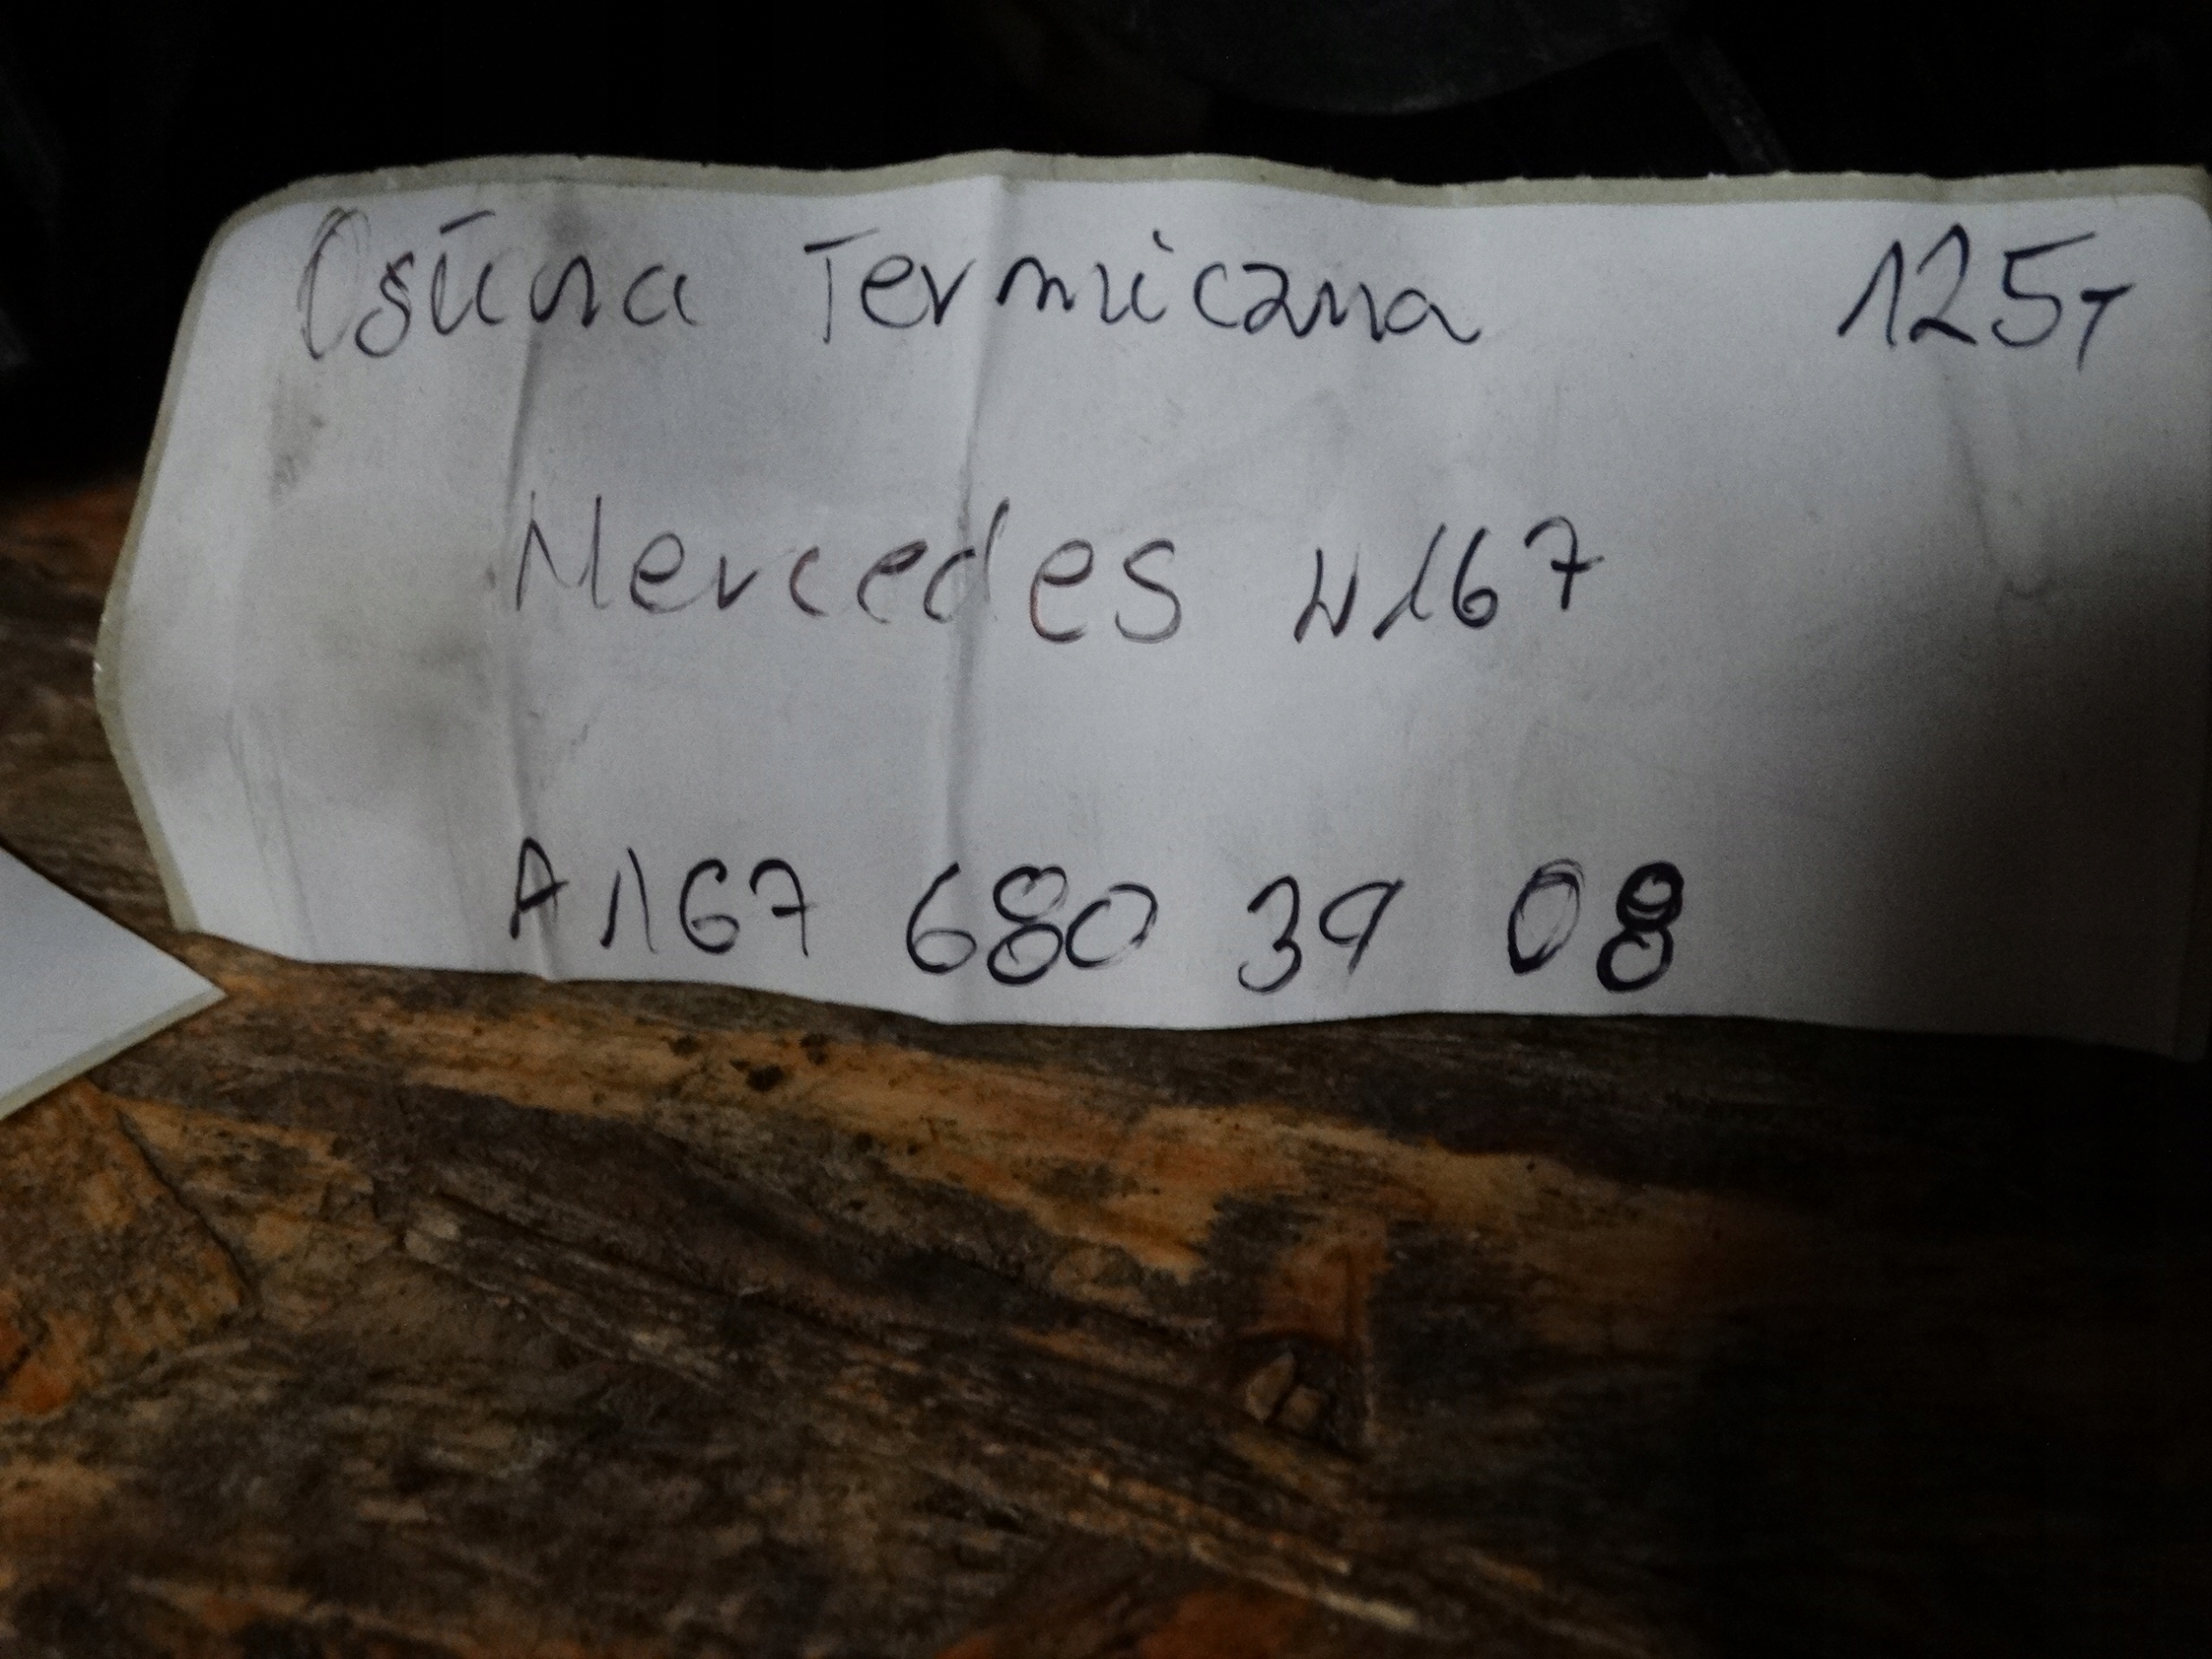 Osłona Termiczna 125T
Mercedes W167
A167 680 39 08